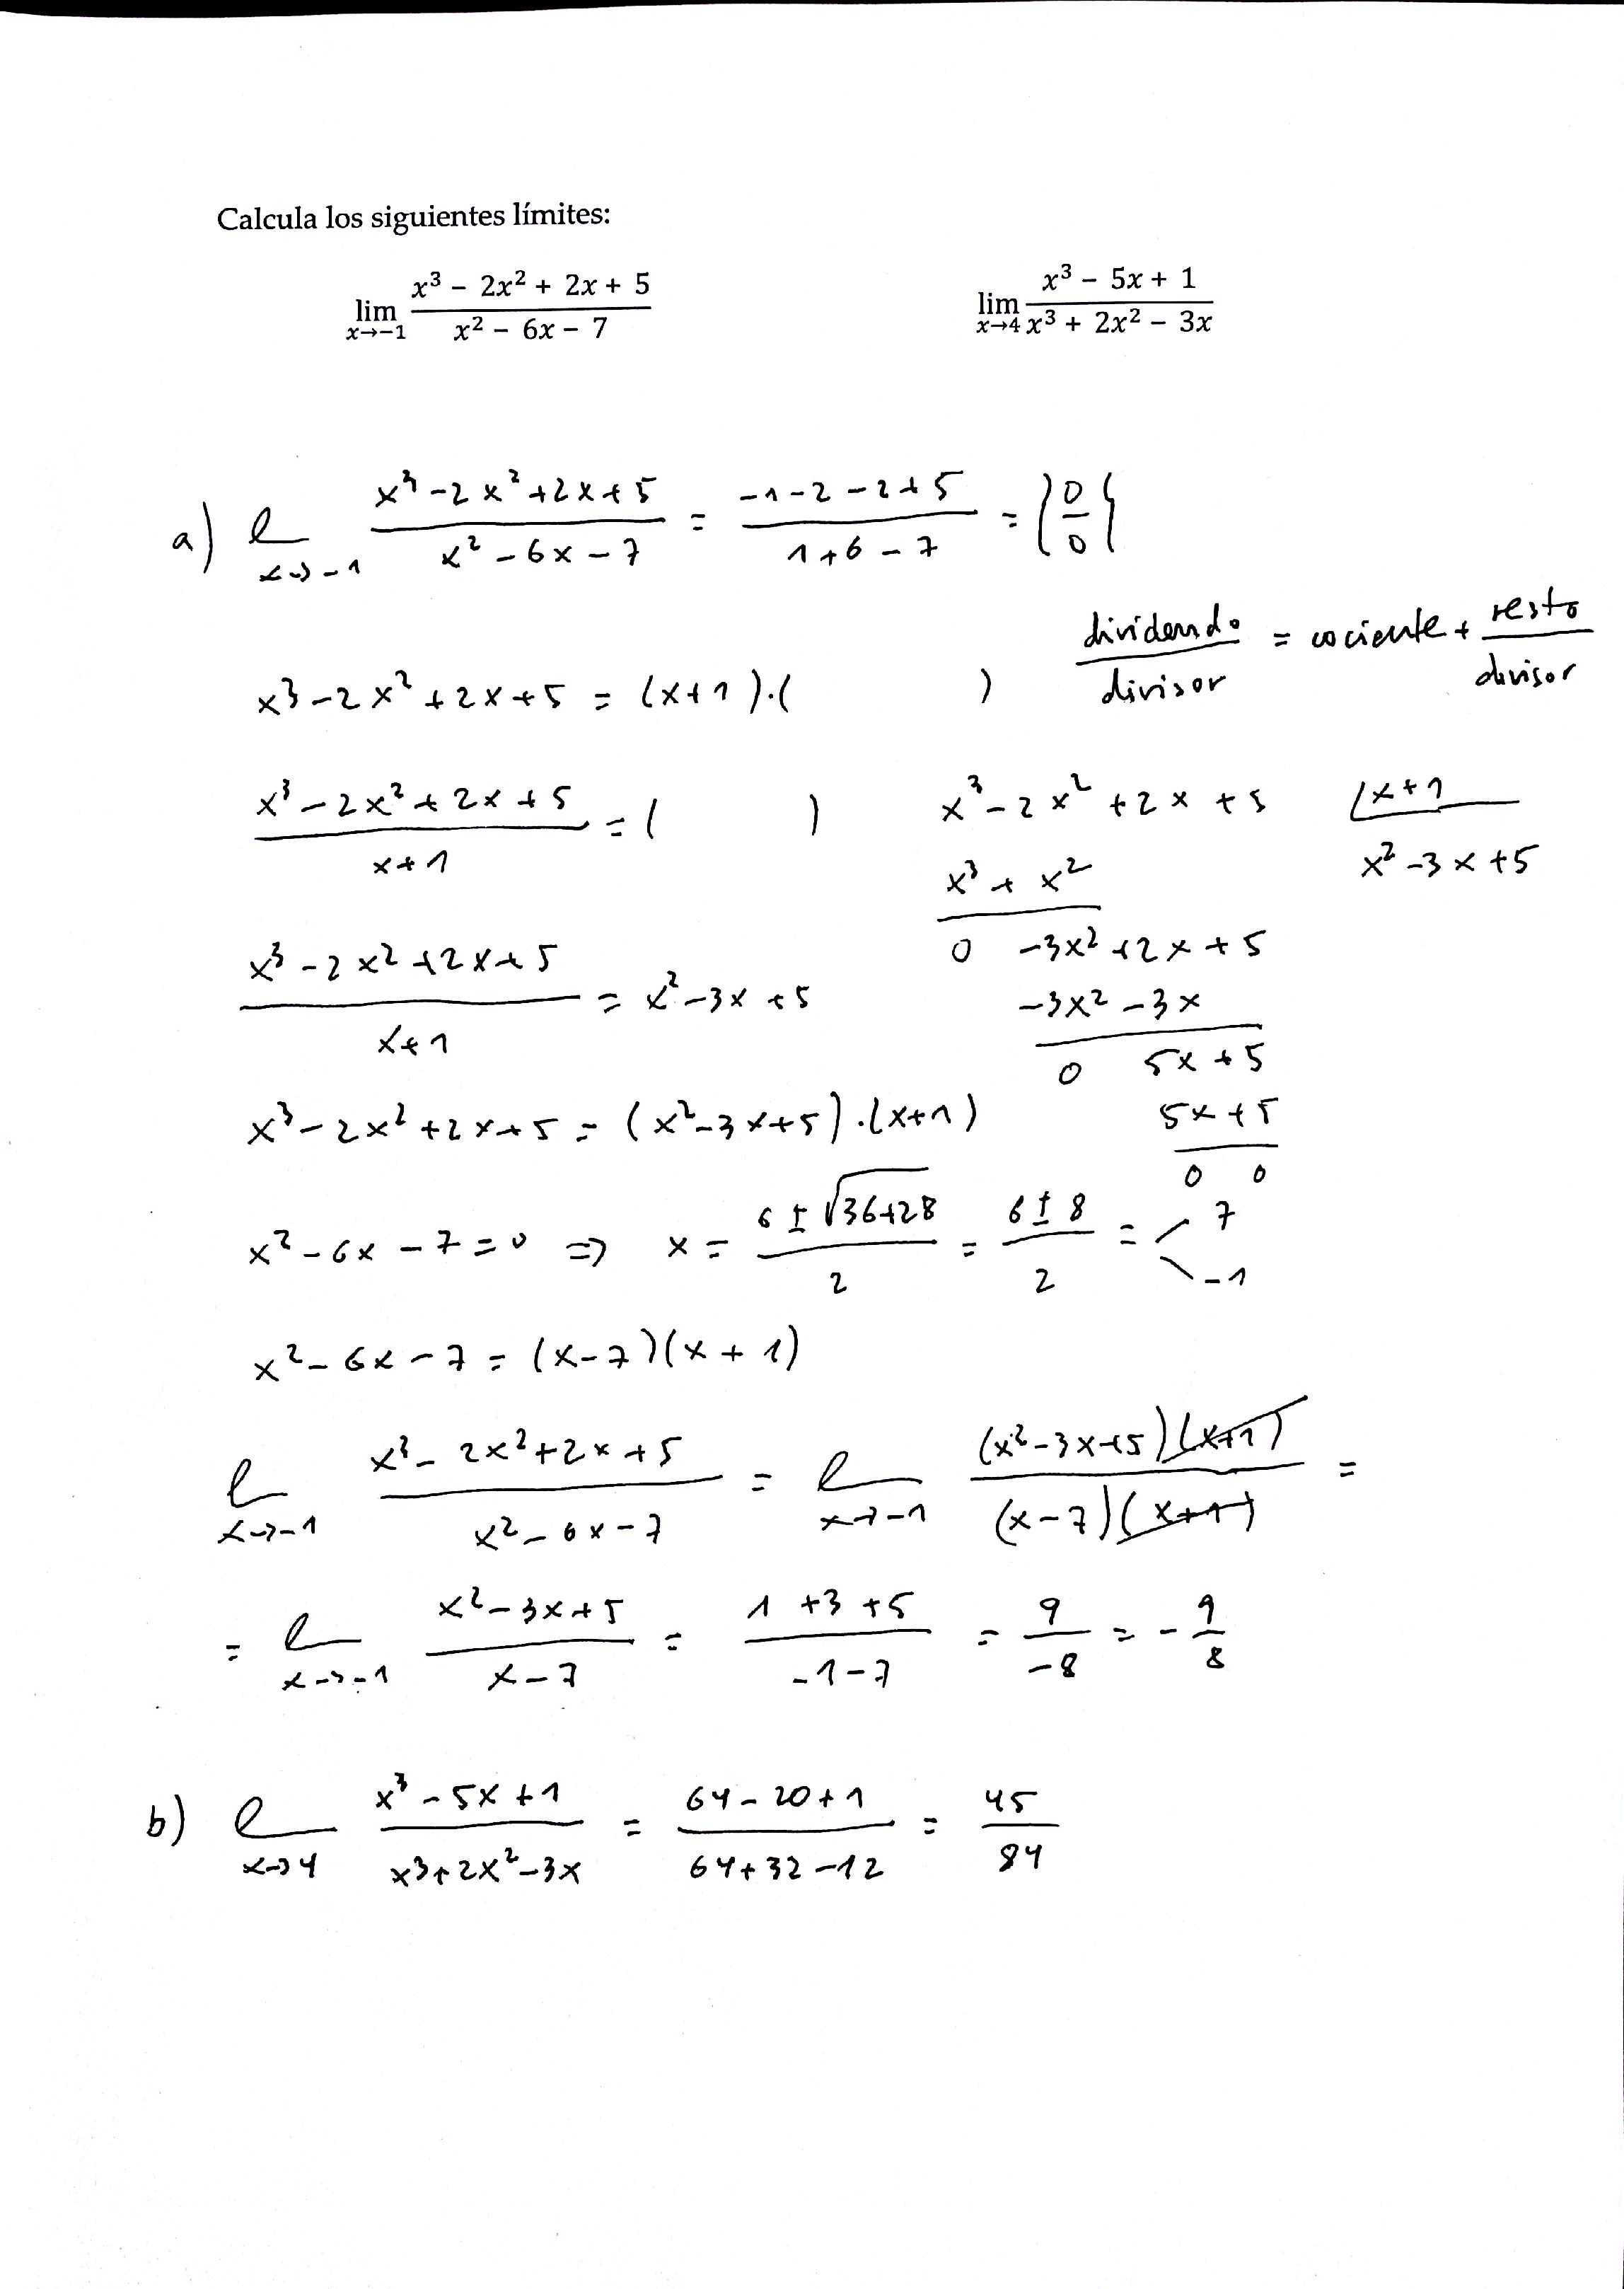 Calcula los siguientes límites:
lim x→−1 (x³ − 2x² + 2x + 5)/(x² − 6x − 7)    lim x→4 (x³ − 5x + 1)/(x³ + 2x² − 3x)
a) l x→−1 (x³ −2x² +2x+5)/(x² −6x −7) = (−1−2−2+5)/(1+6−7) = {0/0}
dividendo/divisor = cociente + resto/divisor
x³ −2x² +2x+5 = (x+1)·(      )
(x³ −2x² +2x+5)/(x+1) = (      )
x³ −2x² +2x +5 | x+1
x³ + x²    x² −3x +5
0 −3x² +2x +5
−3x² −3x
0 5x +5
5x +5
0 0
(x³ −2x² +2x+5)/(x+1) = x² −3x +5
x³ −2x² +2x+5 = (x² −3x+5)·(x+1)
x² −6x −7 = 0 ⇒ x = (6 ± √36+28)/2 = (6 ± 8)/2 = 7 −1
x² −6x −7 = (x−7)(x+1)
l x→−1 (x³ −2x² +2x+5)/(x² −6x−7) = l x→−1 (x² −3x+5)(x+1)/(x−7)(x+1) =
= l x→−1 (x² −3x+5)/(x−7) = (1+3+5)/(−1−7) = 9/−8 = −9/8
b) l x→4 (x³ −5x+1)/(x³+2x²−3x) = (64−20+1)/(64+32−12) = 45/84